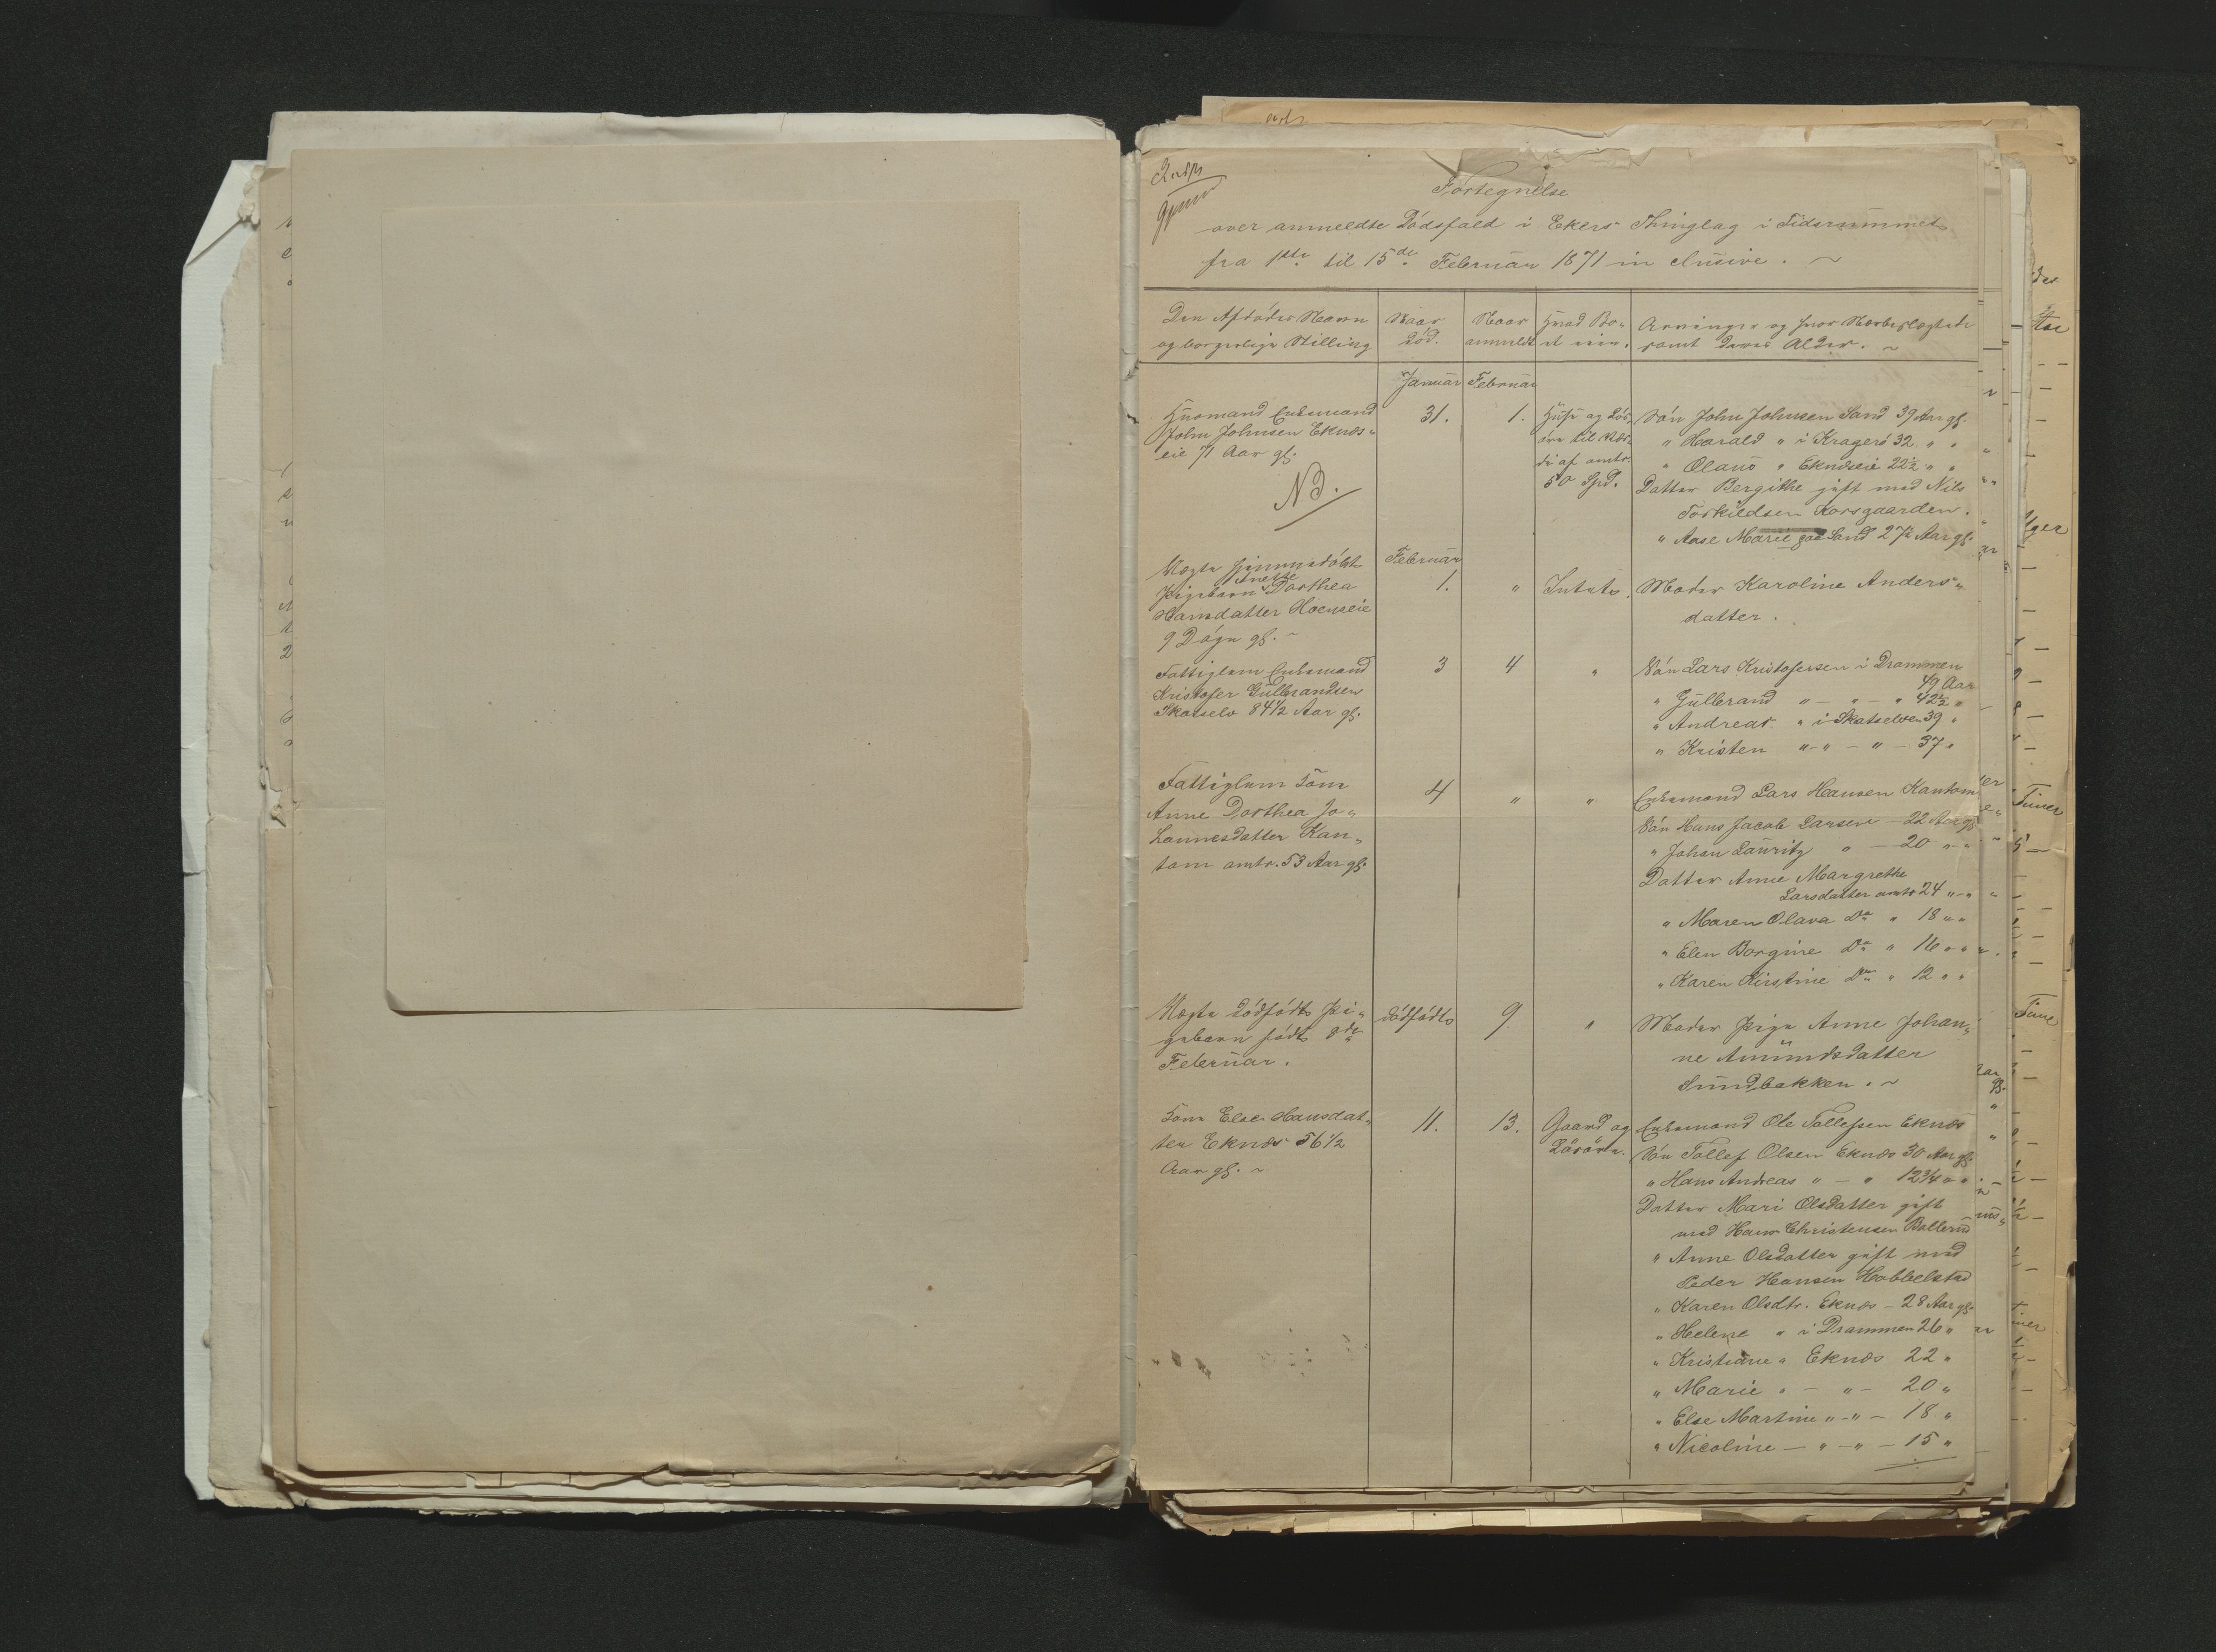 Fortegnelse
over anmeldte Dödsfald i Ekers Thinglag i Tidsrummet
fra 1ste til 15de Februar 1871 inclusive.
Den Afdödes Navn
og borgerlige Stilling
Naar
död.
Naar
anmeldt
Hvad Bo-
et eier.
Arvinger og hvor Nærbeslægtede
samt deres Alder.
Januar
Februar
Huusmand Enkemand
John Johnsen Eknæs-
eie 71 Aar gl.
NB.
31.
1.
Huse og Lös-
öre til Vær-
di af omtr.
50 Spd.
Sön John Johnsen Sand 39 Aar gl.
" Harald " i Kragerö 32 " "
" Olaus " Eknæseie 22½ " "
Datter Bergithe gift med Nils
Torkildsen Korsgaarden.
" Aase Marie paa Sand 27½ Aar gl.
Uægte hjemmedöbt
Pigebarn Inerse Dorthea
Hansdatter Hoenseie
9 Dögn gl.
Februar
1.
"
Intet.
Moder Karoline Anders-
datter.
Fattiglem Enkemand
Kristofer Gulbrandsen
Skotselv 84½ Aar gl.
3
4
"
Sön Lars Kristofersen i Drammen
49 Aar
" Gulbrand " — " — " 42½ "
" Andreas " i Skotselven 39 "
" Kristen " - " — " — 37 "
Fattiglem Kone
Anne Dorthea Jo-
hannesdatter Kan-
tom omtr. 53 Aar gl.
4
"
"
Enkemand Lars Hansen Kantom
Sön Hans Jacob Larsen — 22 Aar gl.
" Johan Lauritz " — 20 " "
Datter Anne Margrethe
Larsdatter omtr 24 " - "
" Maren Olava Do " 18 " "
" Elen Borgine Do " 16 " "
" Karen Kirstine Do " 12 " "
Uægte dödfödt Pi-
gebarn födt 8de
Februar.
dödfödt
9
"
Moder Pige Anne Johan-
ne Amundsdatter
Sundbakken.
Kone Else Hansdat-
ter Eknæs 56½
Aar gl.
11.
13.
Gaard og
Lösöre.
Enkemand Ole Tollefsen Eknæs
Sön Tollef Olsen Eknæs 30 Aar gl.
" Hans Andreas " — " 12¾ " "
Datter Mari Olsdatter gift
med Hans Christensen Bollerud
" Anne Olsdatter gift med
Peder Hansen Hobbelstad
" Karen Olsdtr. Eknæs — 28 Aar gl.
" Helene " i Drammen 26 "
" Kristiane " Eknæs 22 "
" Marie " — " — 20 "
" Else Martine " - " — 18 "
" Nicoline — " — " — 15 "